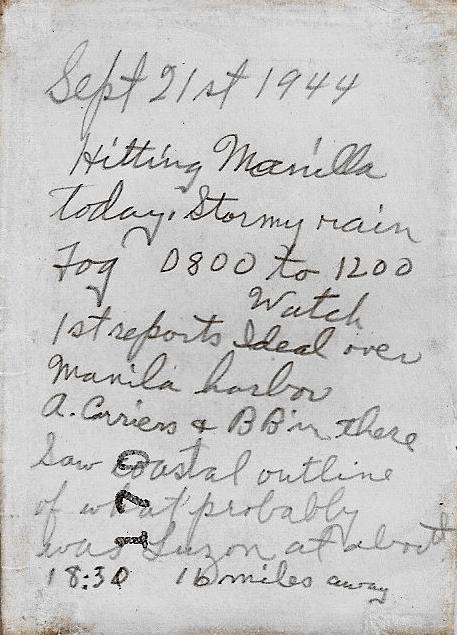 Sept 21st 1944
Hitting Manilla
today. Stormy rain
Fog 0800 to 1200
Watch
1st reports Ideal over
Manila harbor
A. Carriers & BB in there
Saw coastal outline
of what probably
was Luzon at about
18:30 16 miles away
170